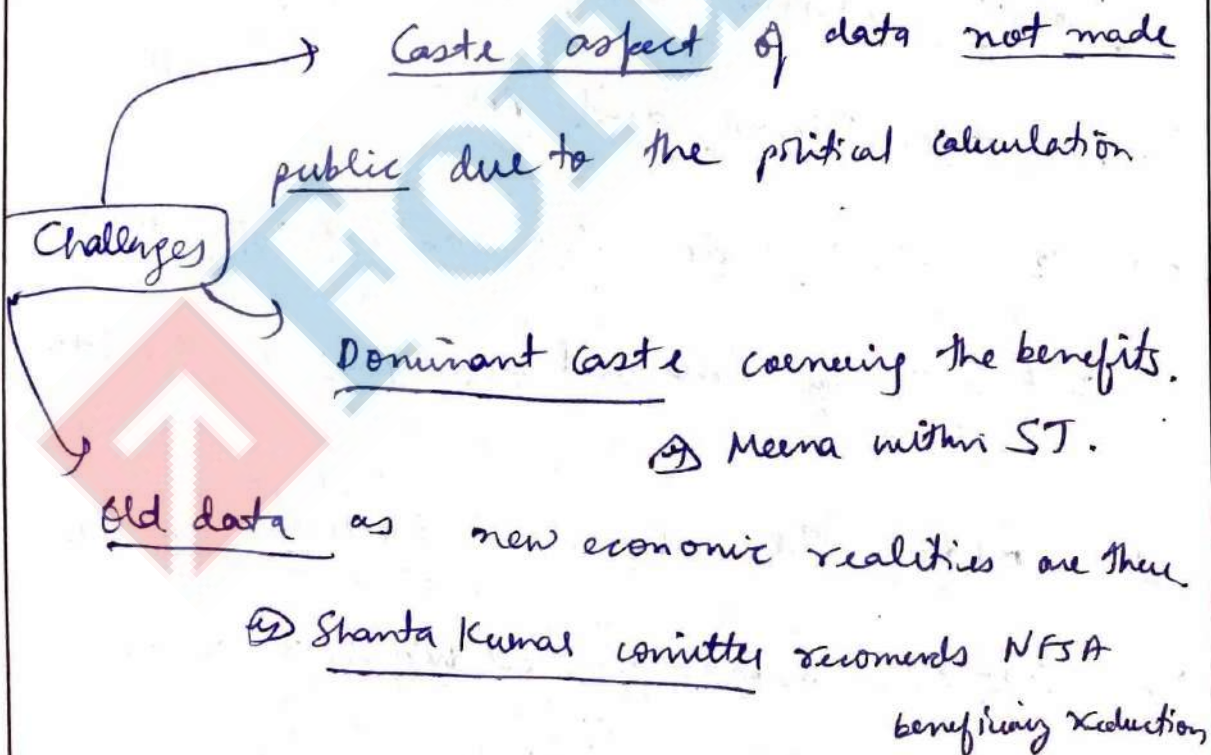 Caste aspect of data not made
public due to the political calculation
Challenges
Dominant caste cornering the benefits.
eg Meena within ST.
Old data as new economic realities are there
eg Shanta Kumar comittee recomends NFSA
reduction